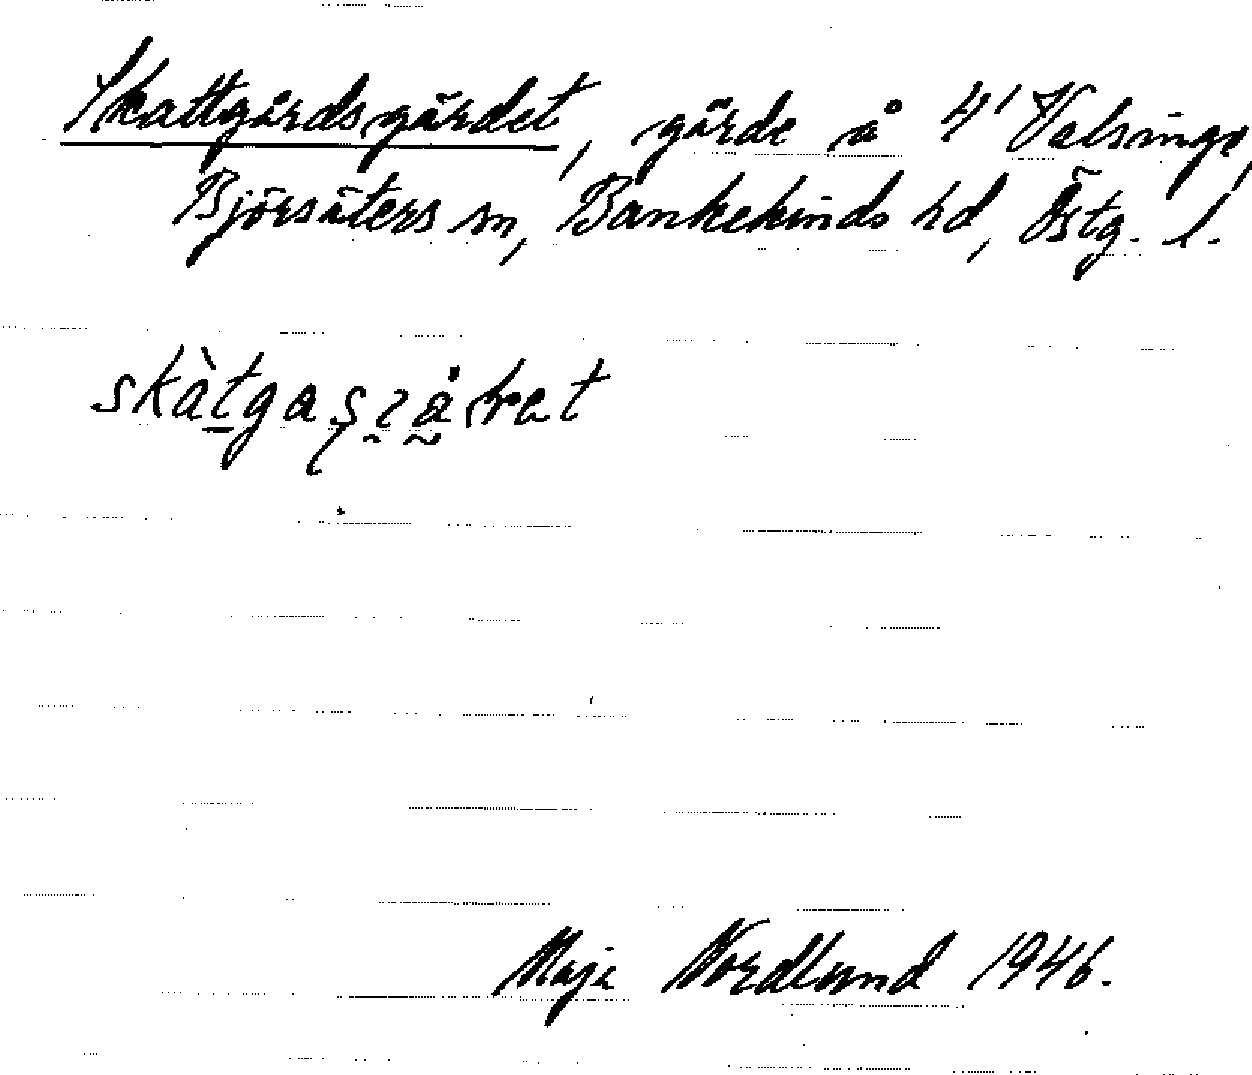 Skattgårdsgärdet, gärde å 4¹ Valsinge,
Björsäters sn, Bankekinds hd, Östg. l.
Maja Nordlund 1946.